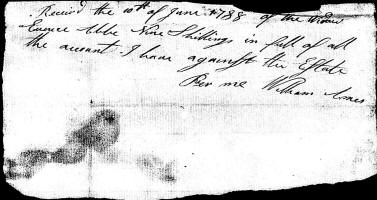 Received the 10th of June 1788 of the Widow
Eunice Nine Shillings in full of all
the account I have against the Estate
Per me William